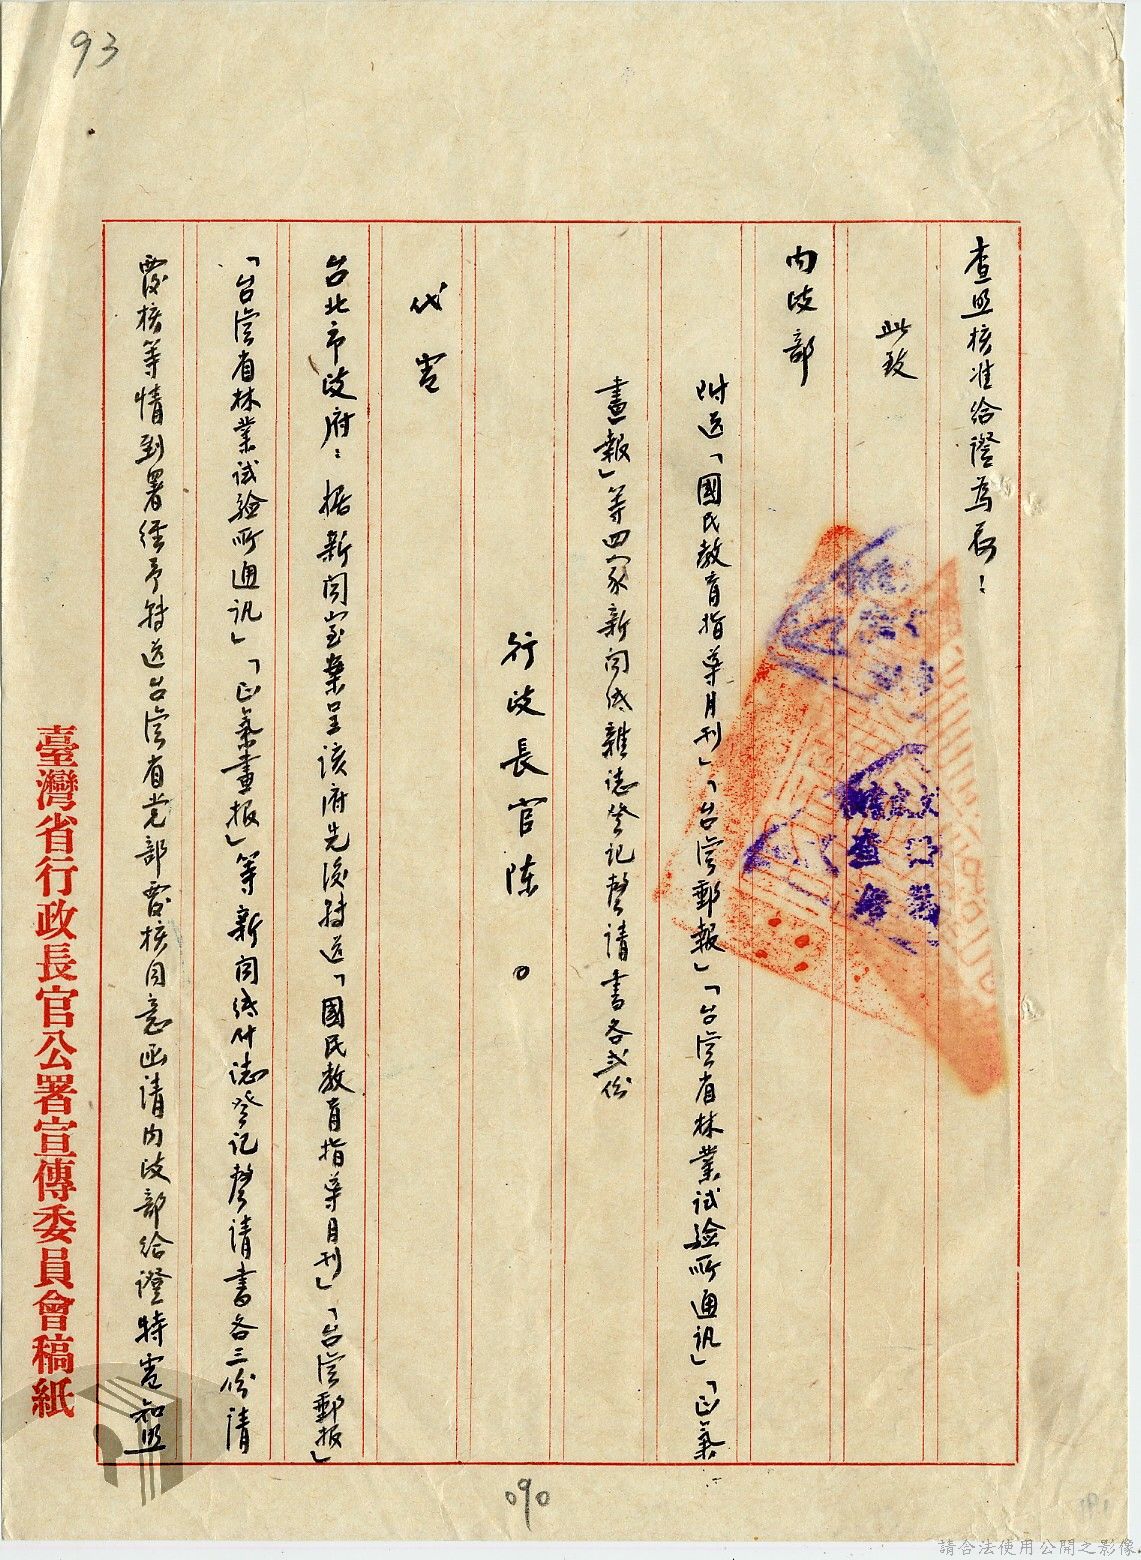 93
查照核准給證為荷!
此致
內政部
附送「國民教育指导月刊」「台湾郵報」「台湾省林業試驗所通訊」「正氣
畫報」等四家新聞紙雜誌登记聲请書各弍份
行政長官陈○
代電
台北市政府:據新聞室案呈该府先後转送「國民教育指导月刊」「台湾郵报」
「台湾省林業試驗所通訊」「正氣畫报」等新闻紙什誌登记聲请書各三份请
覆核等情到署经予转送台湾省党部覆核同意函请内政部给證特電知照
臺灣省行政長官公署宣傳委員會稿紙
090
請合法使用公開之影像